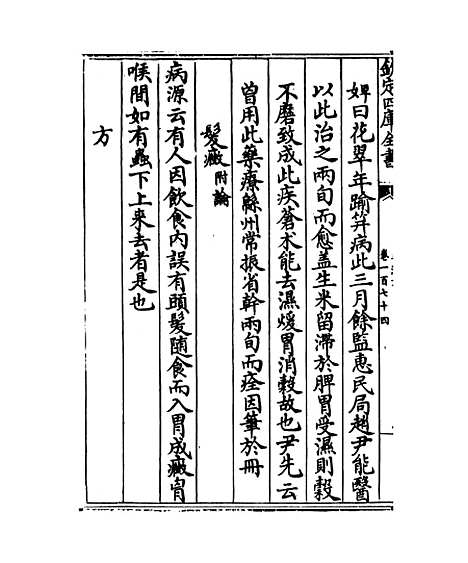 欽定四庫全書
卷一百七十四
婢曰花翠年踰笄病此三月餘監惠民局趙尹能醫
以此治之兩旬而愈盖生米留滯於脾胃受濕則穀
不磨致成此疾蒼术能去濕煖胃消穀故也尹先云
曽用此藥療緜州常振省幹兩旬而痊因筆於冊
髮癥附論
病源云有人因飲食内誤有頭髮随食而入胃成癥胷
喉間如有蟲下上来去者是也
方